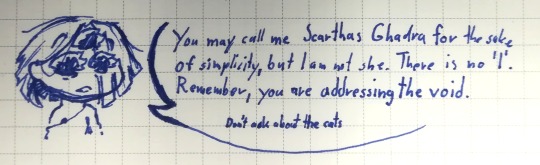 You may call me Scarthas Ghadra for the sake
of simplicity, but I am not she. There is no 'I'.
Remember, you are addressing the void.
Don't ask about the cats